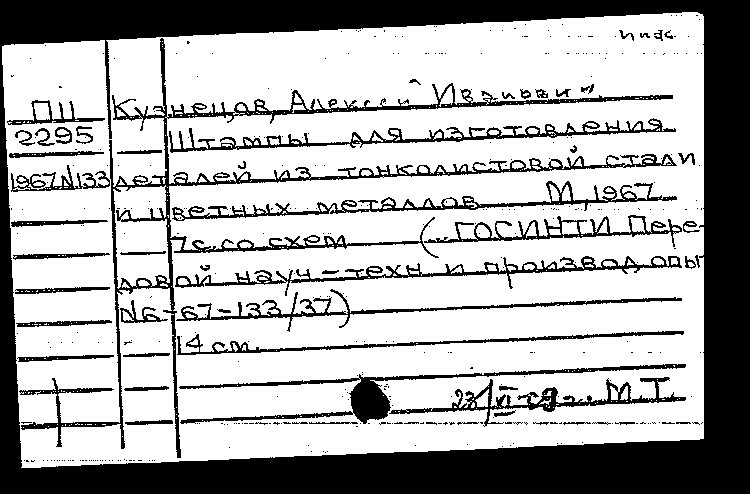 ПШ Кузнецов, Алексей Иванович.
2295 Штампы для изготовления
1967 N133 деталей из тонколистовой стали
и цветных металлов М, 1967
7с. со схем (ГОСИНТИ Пере-
довой науч-техн и производ опыт
N6-67-133/37)
14 см.
23/VI М.Т.